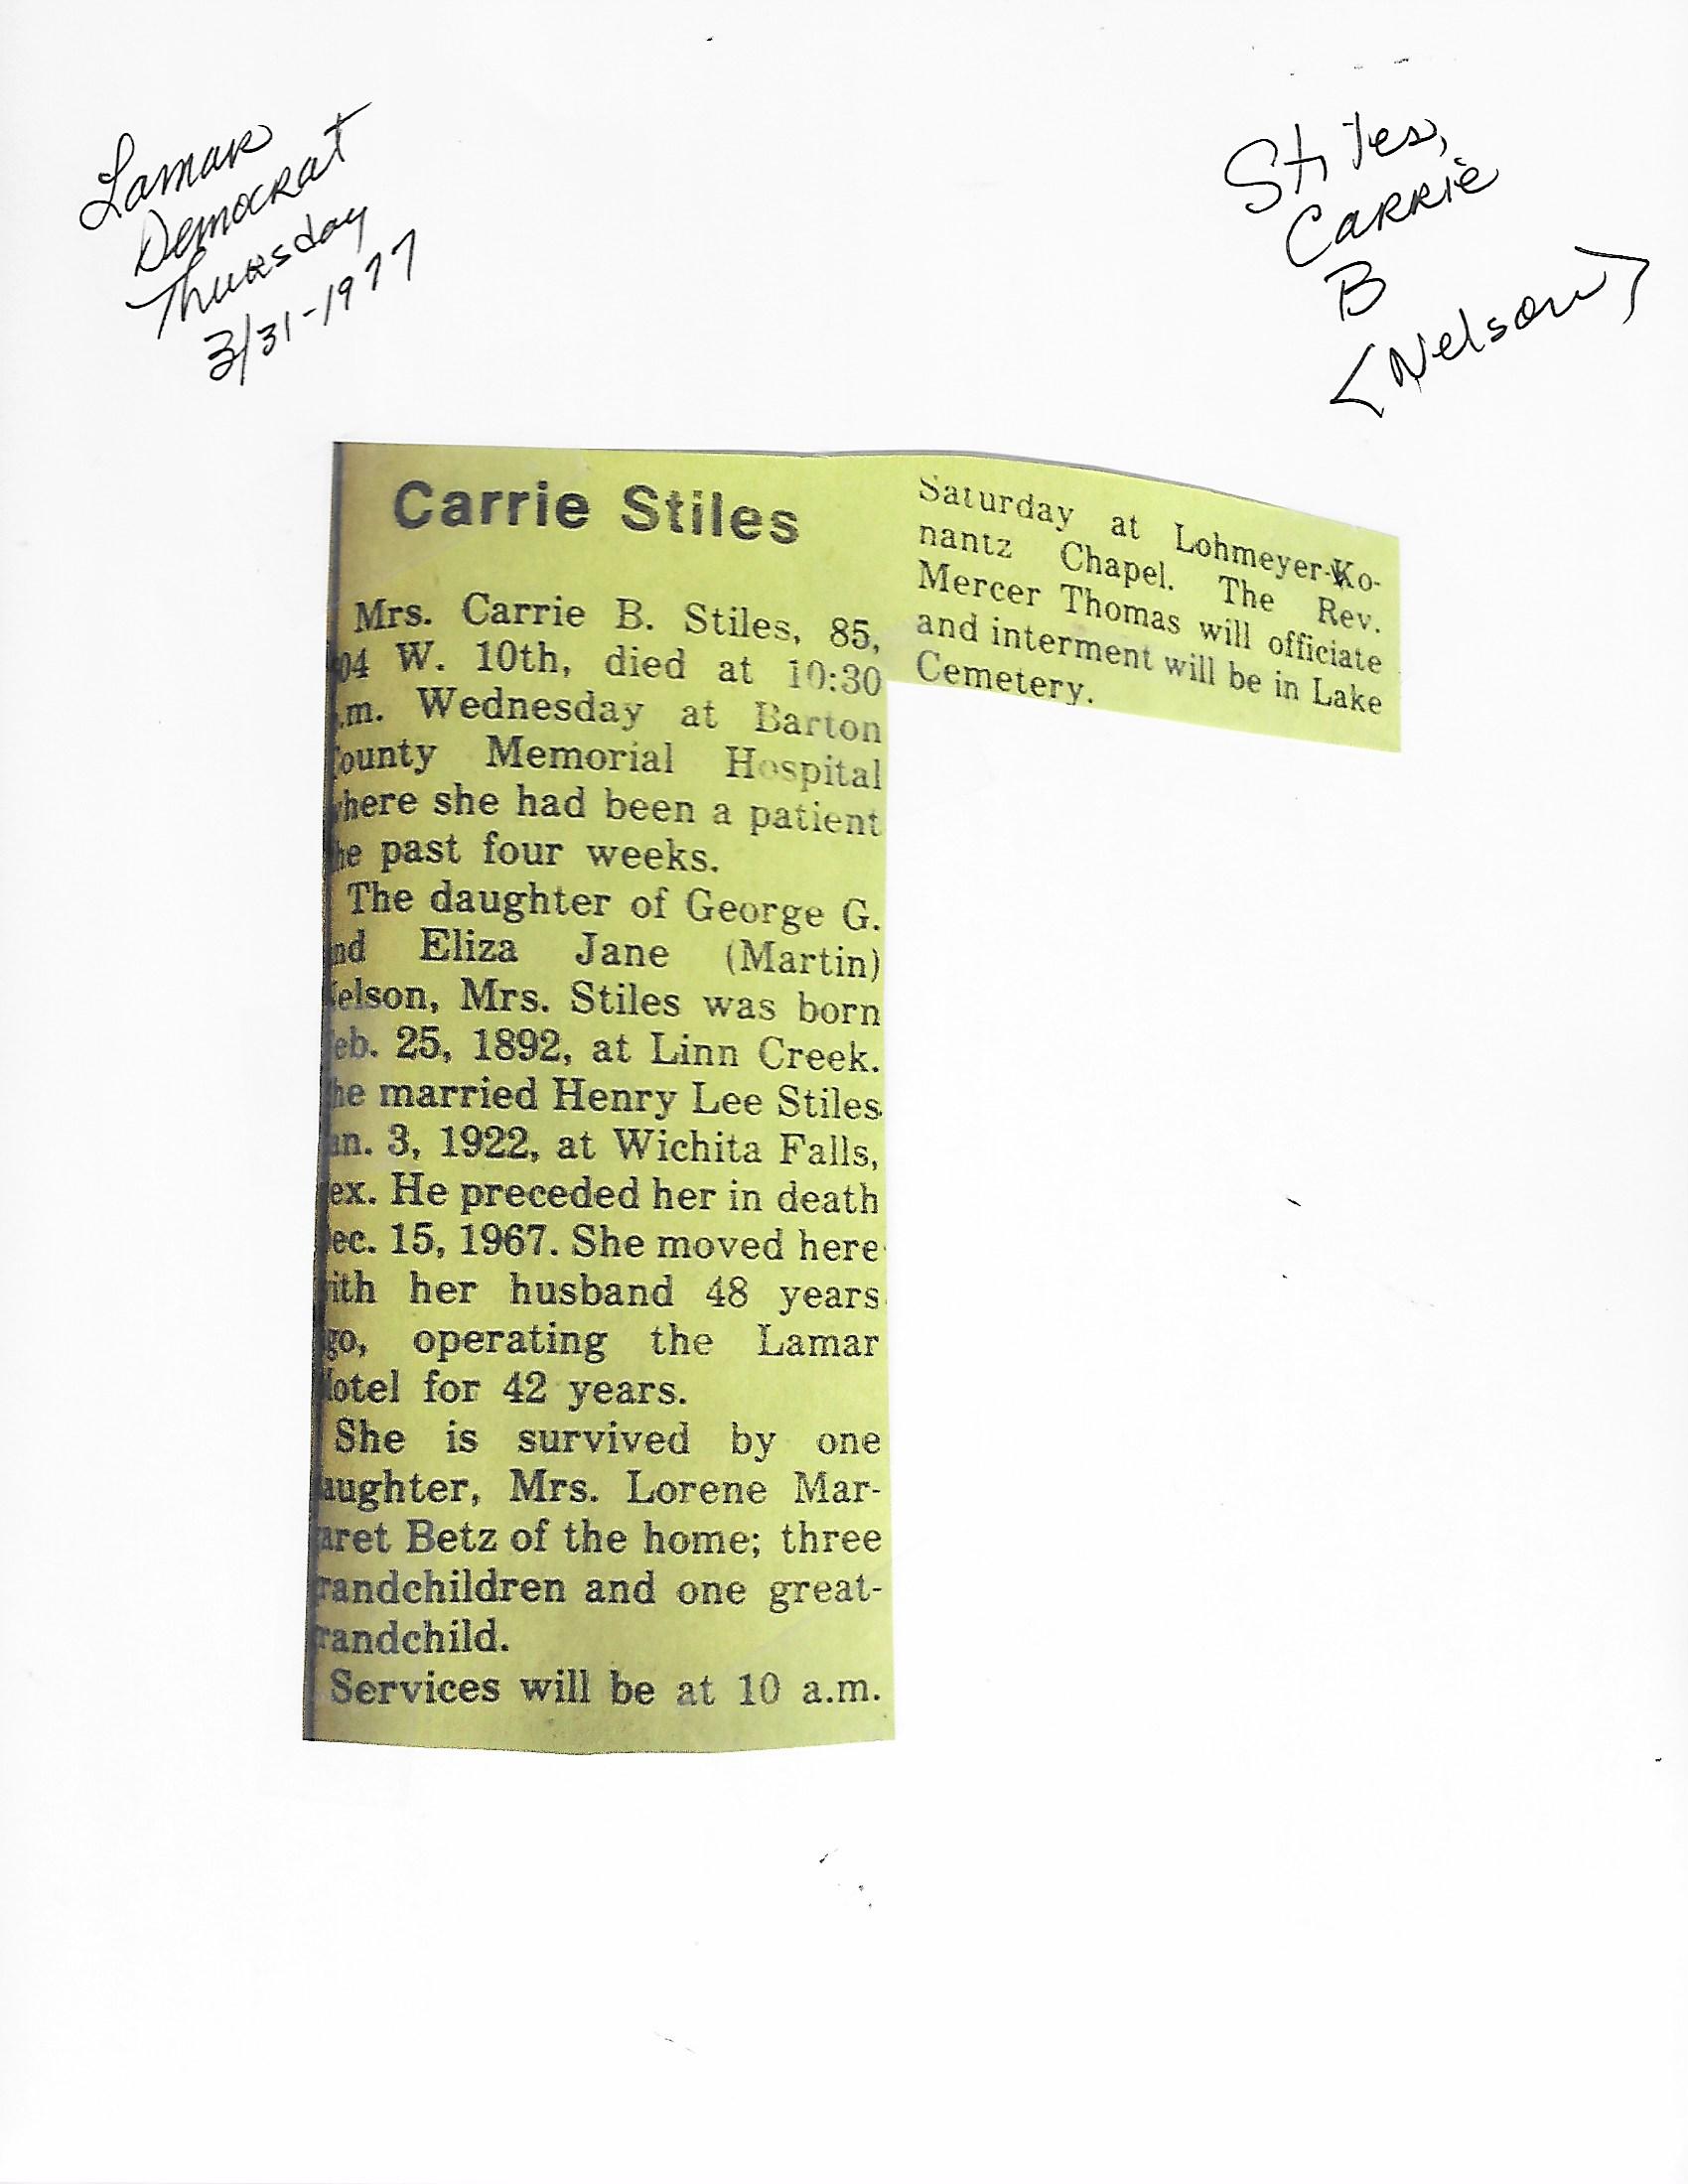 Lamar
Democrat
Thursday
3/31-1977
Stiles,
Carrie
B
<Nelson>
Carrie Stiles
Mrs. Carrie B. Stiles, 85,
04 W. 10th, died at 10:30
.m. Wednesday at Barton
ounty Memorial Hospital
here she had been a patient
he past four weeks.
The daughter of George G.
nd Eliza Jane (Martin)
elson, Mrs. Stiles was born
eb. 25, 1892, at Linn Creek.
he married Henry Lee Stiles
an. 3, 1922, at Wichita Falls,
ex. He preceded her in death
ec. 15, 1967. She moved here
ith her husband 48 years
go, operating the Lamar
otel for 42 years.
She is survived by one
aughter, Mrs. Lorene Mar-
aret Betz of the home; three
randchildren and one great-
randchild.
Services will be at 10 a.m.
Saturday at Lohmeyer-Ko-
nantz Chapel. The Rev.
Mercer Thomas will officiate
and interment will be in Lake
Cemetery.